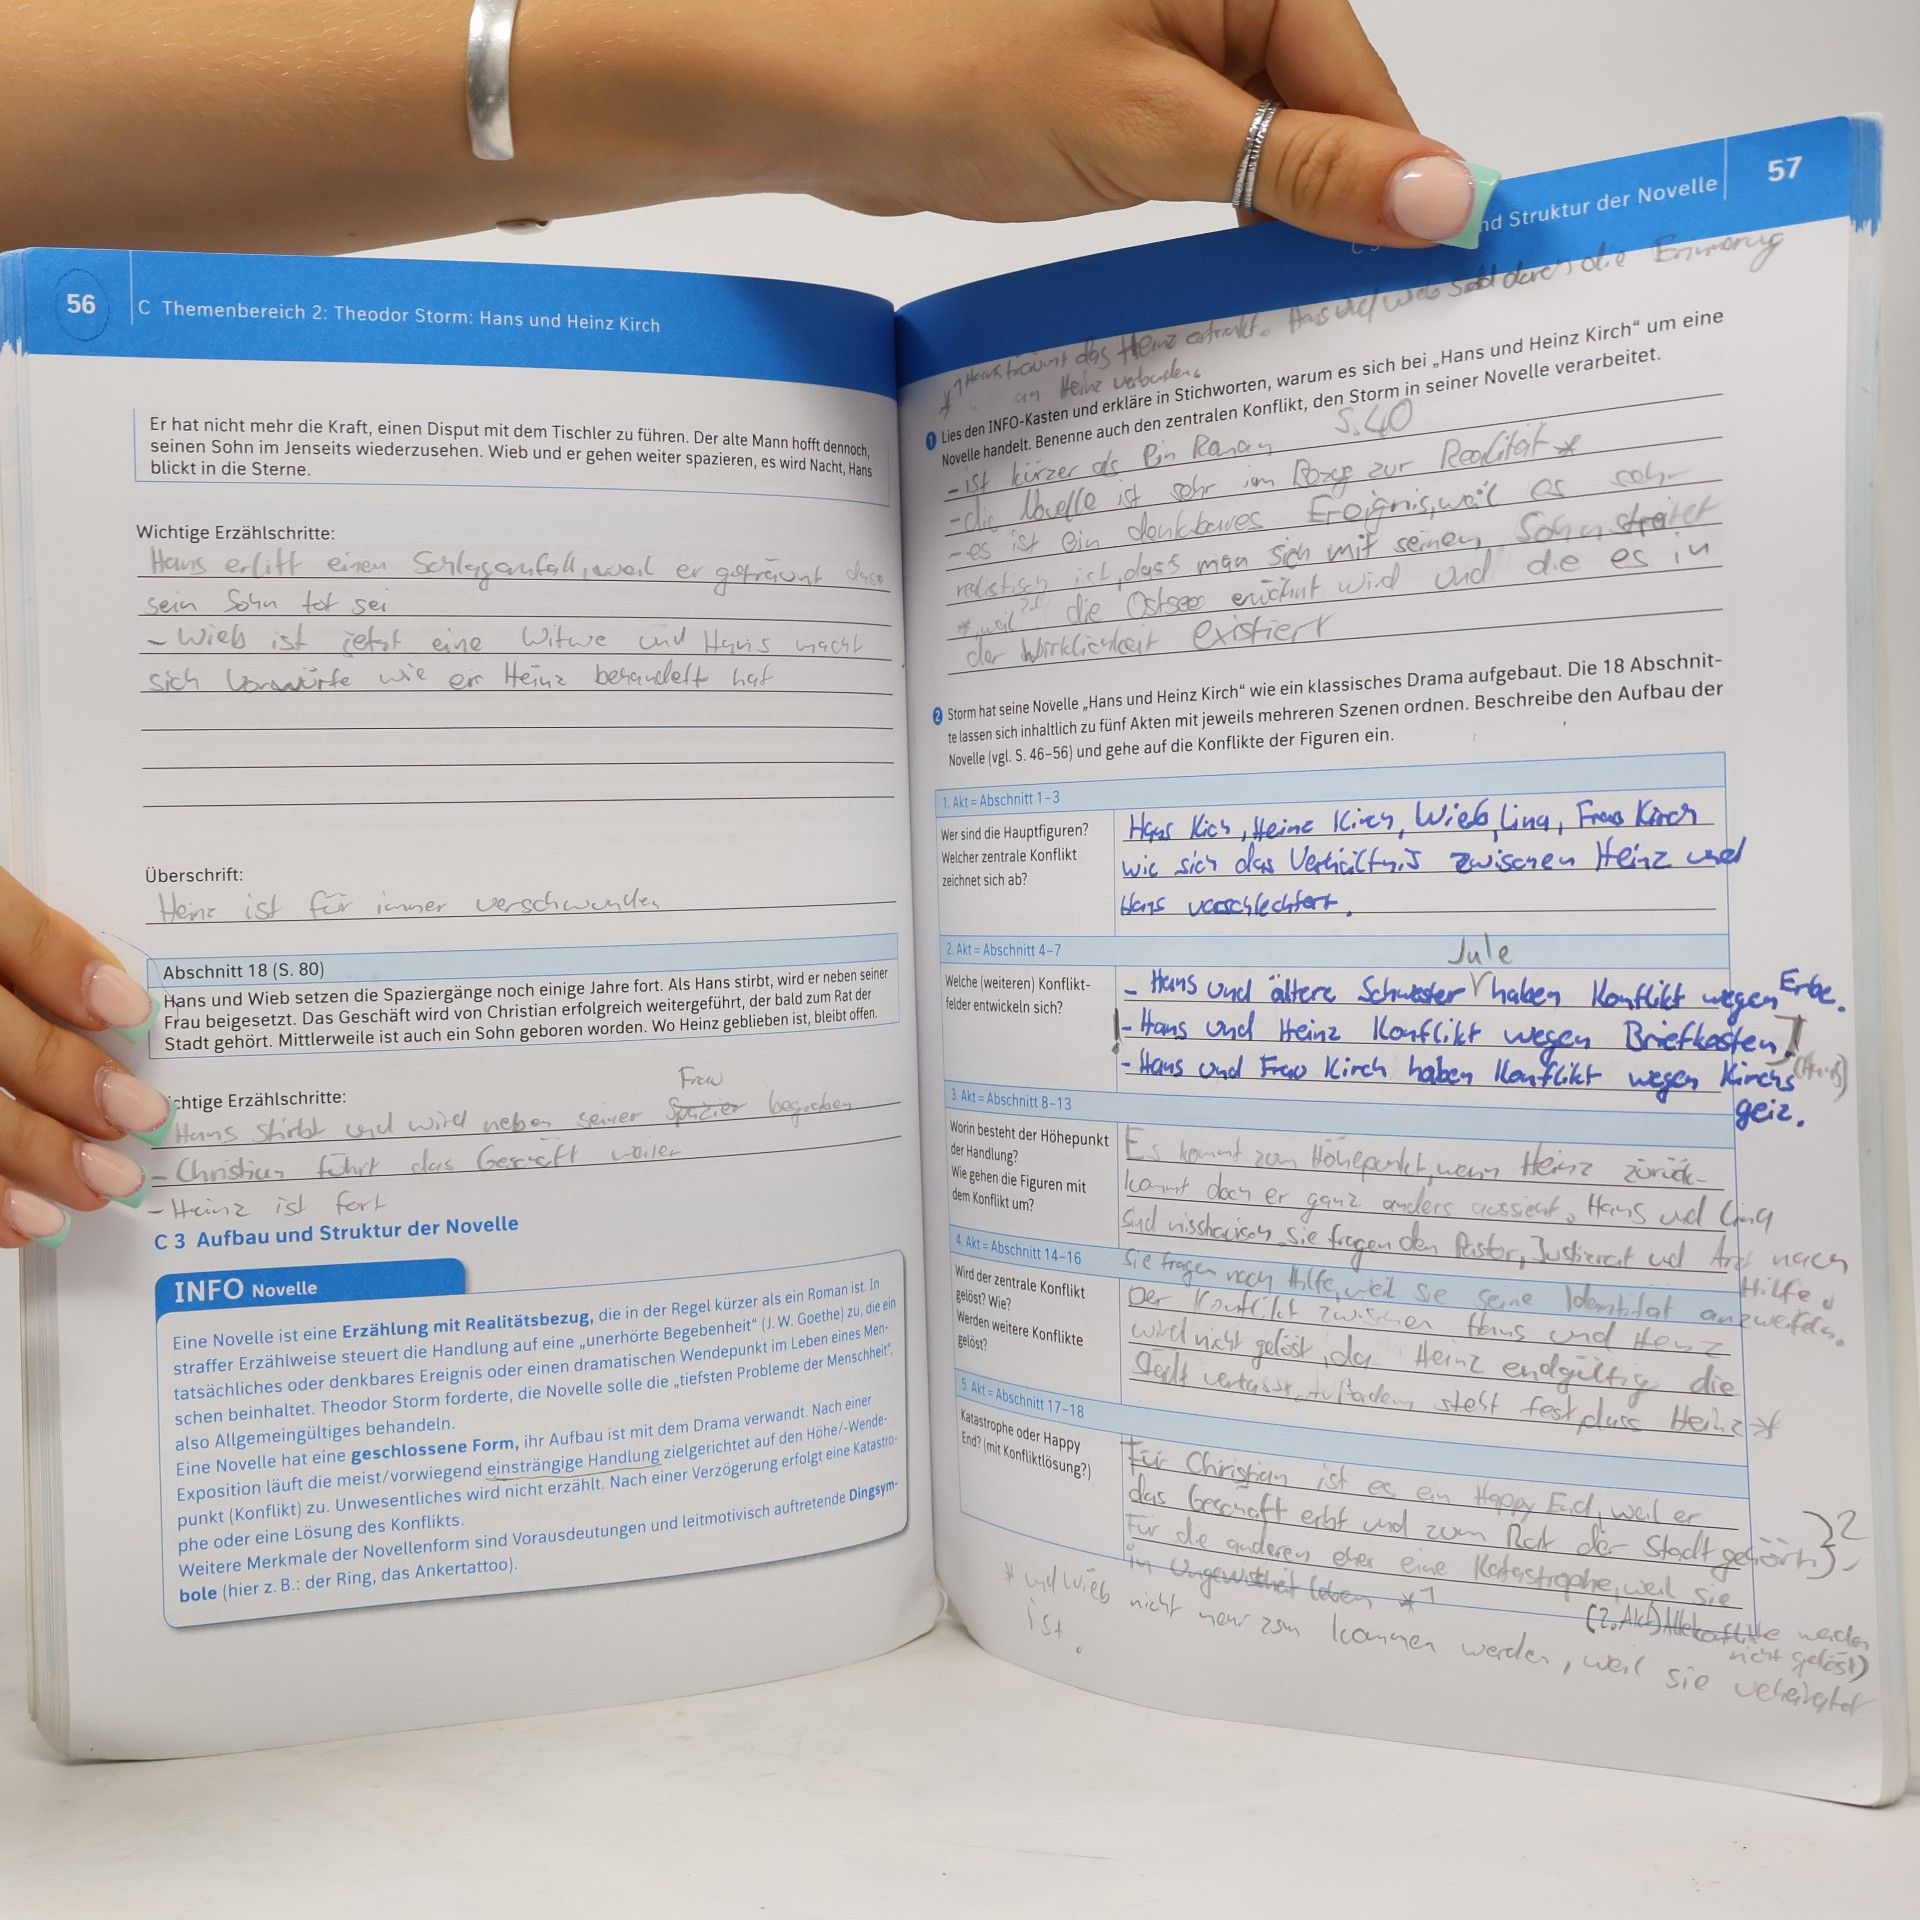 56
C Themenbereich 2: Theodor Storm: Hans und Heinz Kirch
Er hat nicht mehr die Kraft, einen Disput mit dem Tischler zu führen. Der alte Mann hofft dennoch,
seinen Sohn im Jenseits wiederzusehen. Wieb und er gehen weiter spazieren, es wird Nacht, Hans
blickt in die Sterne.
Wichtige Erzählschritte:
Hans erlitt einen Schlaganfall, weil er geträumt dass
sein Sohn tot sei
- Wieb ist jetzt eine Witwe und Hans macht
sich Vorwürfe wie er Heinz behandelt hat
Überschrift:
Heinz ist für immer verschwunden
Abschnitt 18 (S. 80)
Hans und Wieb setzen die Spaziergänge noch einige Jahre fort. Als Hans stirbt, wird er neben seiner
Frau beigesetzt. Das Geschäft wird von Christian erfolgreich weitergeführt, der bald zum Rat der
Stadt gehört. Mittlerweile ist auch ein Sohn geboren worden. Wo Heinz geblieben ist, bleibt offen.
chtige Erzählschritte:
Frau
Hans stirbt und wird neben seiner Spazier begraben
- Christian führt das Geschäft weiter
- Heinz ist fort
C 3 Aufbau und Struktur der Novelle
INFO Novelle
Eine Novelle ist eine Erzählung mit Realitätsbezug, die in der Regel kürzer als ein Roman ist. In
straffer Erzählweise steuert die Handlung auf eine „unerhörte Begebenheit“ (J. W. Goethe) zu, die ein
tatsächliches oder denkbares Ereignis oder einen dramatischen Wendepunkt im Leben eines Men-
schen beinhaltet. Theodor Storm forderte, die Novelle solle die „tiefsten Probleme der Menschheit“,
also Allgemeingültiges behandeln.
Eine Novelle hat eine geschlossene Form, ihr Aufbau ist mit dem Drama verwandt. Nach einer
Exposition läuft die meist/vorwiegend einsträngige Handlung zielgerichtet auf den Höhe-/Wende-
punkt (Konflikt) zu. Unwesentliches wird nicht erzählt. Nach einer Verzögerung erfolgt eine Katastro-
phe oder eine Lösung des Konflikts.
Weitere Merkmale der Novellenform sind Vorausdeutungen und leitmotivisch auftretende Dingsym-
bole (hier z. B.: der Ring, das Ankertattoo).
nd Struktur der Novelle
57
*1 Hans träumt das Heinz ertrinkt. Hans und Wieb sind durch die Erinnerung
an Heinz verbunden.
1 Lies den INFO-Kasten und erkläre in Stichworten, warum es sich bei „Hans und Heinz Kirch“ um eine
Novelle handelt. Benenne auch den zentralen Konflikt, den Storm in seiner Novelle verarbeitet.
- ist kürzer als ein Roman S.40
- die Novelle ist sehr im Bezug zur Realität *
- es ist ein denkbares Ereignis, weil es sehr
realistisch ist, dass man sich mit seinem Sohn streitet
*, weil die Ostsee erwähnt wird und die es in
der Wirklichkeit existiert
2 Storm hat seine Novelle „Hans und Heinz Kirch“ wie ein klassisches Drama aufgebaut. Die 18 Abschnit-
te lassen sich inhaltlich zu fünf Akten mit jeweils mehreren Szenen ordnen. Beschreibe den Aufbau der
Novelle (vgl. S. 46–56) und gehe auf die Konflikte der Figuren ein.
1. Akt = Abschnitt 1–3
Wer sind die Hauptfiguren?
Welcher zentrale Konflikt
zeichnet sich ab?
Hans Kich, Heinz Kirch, Wieb, Lina, Frau Kirch
wie sich das Verhältnis zwischen Heinz und
Hans verschlechtert.
2. Akt = Abschnitt 4–7
Welche (weiteren) Konflikt-
felder entwickeln sich?
Jule
- Hans und ältere Schwester haben Konflikt wegen Erbe.
- Hans und Heinz Konflikt wegen Briefkosten.
- Hans und Frau Kirch haben Konflikt wegen Kirchs (Hans)
geiz.
3. Akt = Abschnitt 8–13
Worin besteht der Höhepunkt
der Handlung?
Wie gehen die Figuren mit
dem Konflikt um?
Es kommt zum Höhepunkt, wenn Heinz zurück-
kommt doch er ganz anders aussieht. Hans und Lina
sind misstrauisch. Sie fragen den Pastor, Justizrat und Arzt nach
Hilfe.
Sie fragen nach Hilfe, weil sie seine Identität anzweifeln.
4. Akt = Abschnitt 14–16
Wird der zentrale Konflikt
gelöst? Wie?
Werden weitere Konflikte
gelöst?
Der Konflikt zwischen Hans und Heinz
wird nicht gelöst, da Heinz endgültig die
Stadt verlässt. Außerdem steht fest, dass Heinz *
5. Akt = Abschnitt 17–18
Katastrophe oder Happy
End? (mit Konfliktlösung?)
Für Christian ist es ein Happy End, weil er
das Geschäft erbt und zum Rat der Stadt gehört
Für die anderen eher eine Katastrophe, weil sie
in Ungewissheit leben *1
(2. Akt) Alle Konflikte werden
nicht gelöst)
* und Wieb nicht mehr zsm kommen werden, weil sie verheiratet
ist.